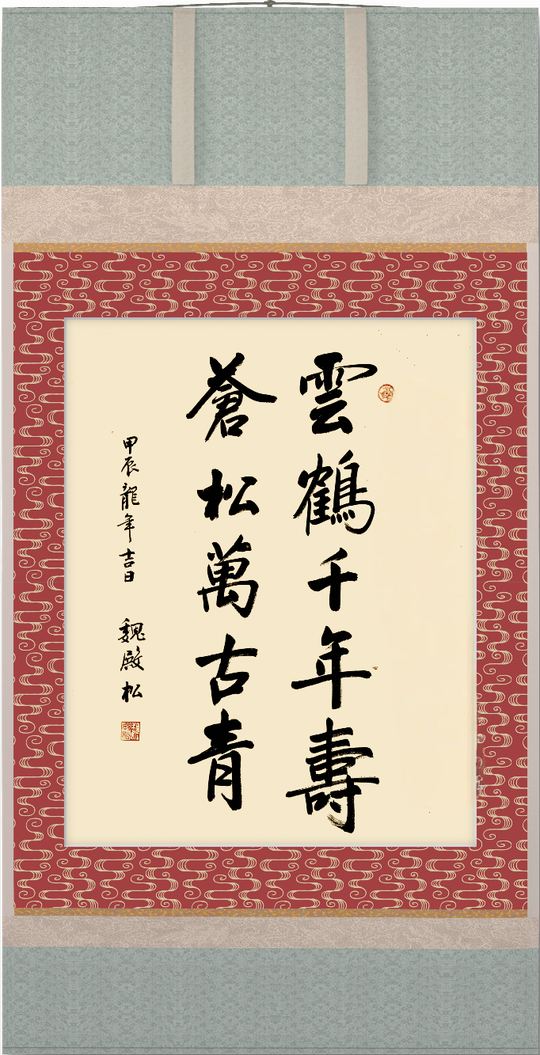 雲鶴千年壽
蒼松萬古青
甲辰龍年吉日 魏殿松